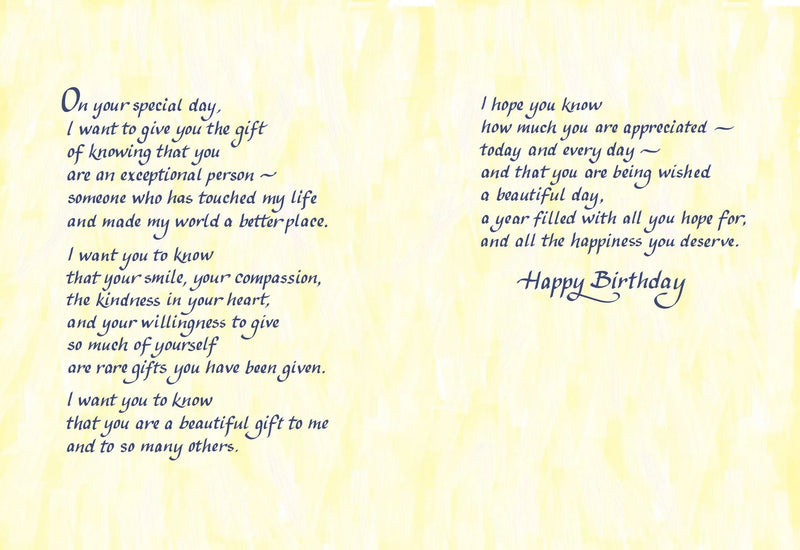 On your special day,
I want to give you the gift
of knowing that you
are an exceptional person ~
someone who has touched my life
and made my world a better place.
I want you to know
that your smile, your compassion,
the kindness in your heart,
and your willingness to give
so much of yourself
are rare gifts you have been given.
I want you to know
that you are a beautiful gift to me
and to so many others.
I hope you know
how much you are appreciated ~
today and every day ~
and that you are being wished
a beautiful day,
a year filled with all you hope for,
and all the happiness you deserve.
Happy Birthday